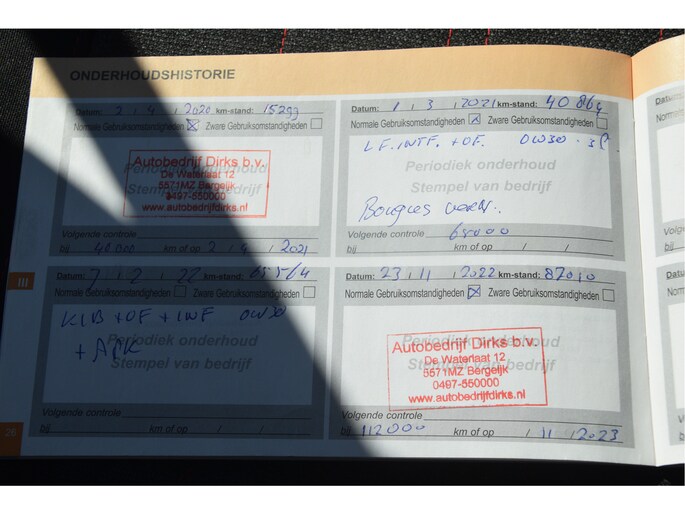 ONDERHOUDSHISTORIE
Datum: 2 / 4 / 2020 km-stand: 15293
Normale Gebruiksomstandigheden Zware Gebruiksomstandigheden
Periodiek onderhoud
Stempel van bedrijf
Autobedrijf Dirks b.v.
De Waterlaat 12
5571MZ Bergeijk
0497-550000
www.autobedrijfdirks.nl
Volgende controle
bij 40 000 km of op 2 / 4 / 2021
Datum: 1 / 3 / 2021 km-stand: 40864
Normale Gebruiksomstandigheden Zware Gebruiksomstandigheden
LF. INTF. + OF. OW30
Periodiek onderhoud
Stempel van bedrijf
Bougies
Volgende controle 65000
bij km of op / /
Datum: 7 / 2 / 22 km-stand: 65564
Normale Gebruiksomstandigheden Zware Gebruiksomstandigheden
KLB + OF + INF OW30
Periodiek onderhoud
+ APK
Stempel van bedrijf
Volgende controle
bij km of op / /
Datum: 23 / 11 / 2022 km-stand: 87010
Normale Gebruiksomstandigheden Zware Gebruiksomstandigheden
Periodiek onderhoud
Stempel van bedrijf
Autobedrijf Dirks b.v.
De Waterlaat 12
5571MZ Bergeijk
0497-550000
www.autobedrijfdirks.nl
Volgende controle
bij 112000 km of op / 11 / 2023
III
26